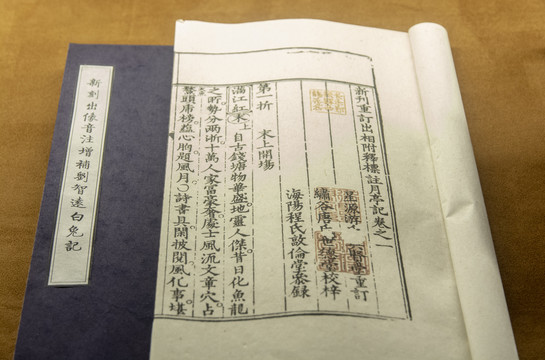 新刊重訂出相附釋標註月亭記卷之一
星源游氏 興賢堂重訂
繡谷唐氏 世德堂校梓
海陽程氏敦倫堂參錄
第一折 末上開場
滿江紅 末上 自古錢塘物華盛地靈人傑昔日化魚龍
之所勢分兩浙十萬人家富豪奢處士風流文章穴占
鰲頭虎榜 心胸題風月○詩書具開披閱風化事堪
新刻出像音注增補劉智遠白兔記